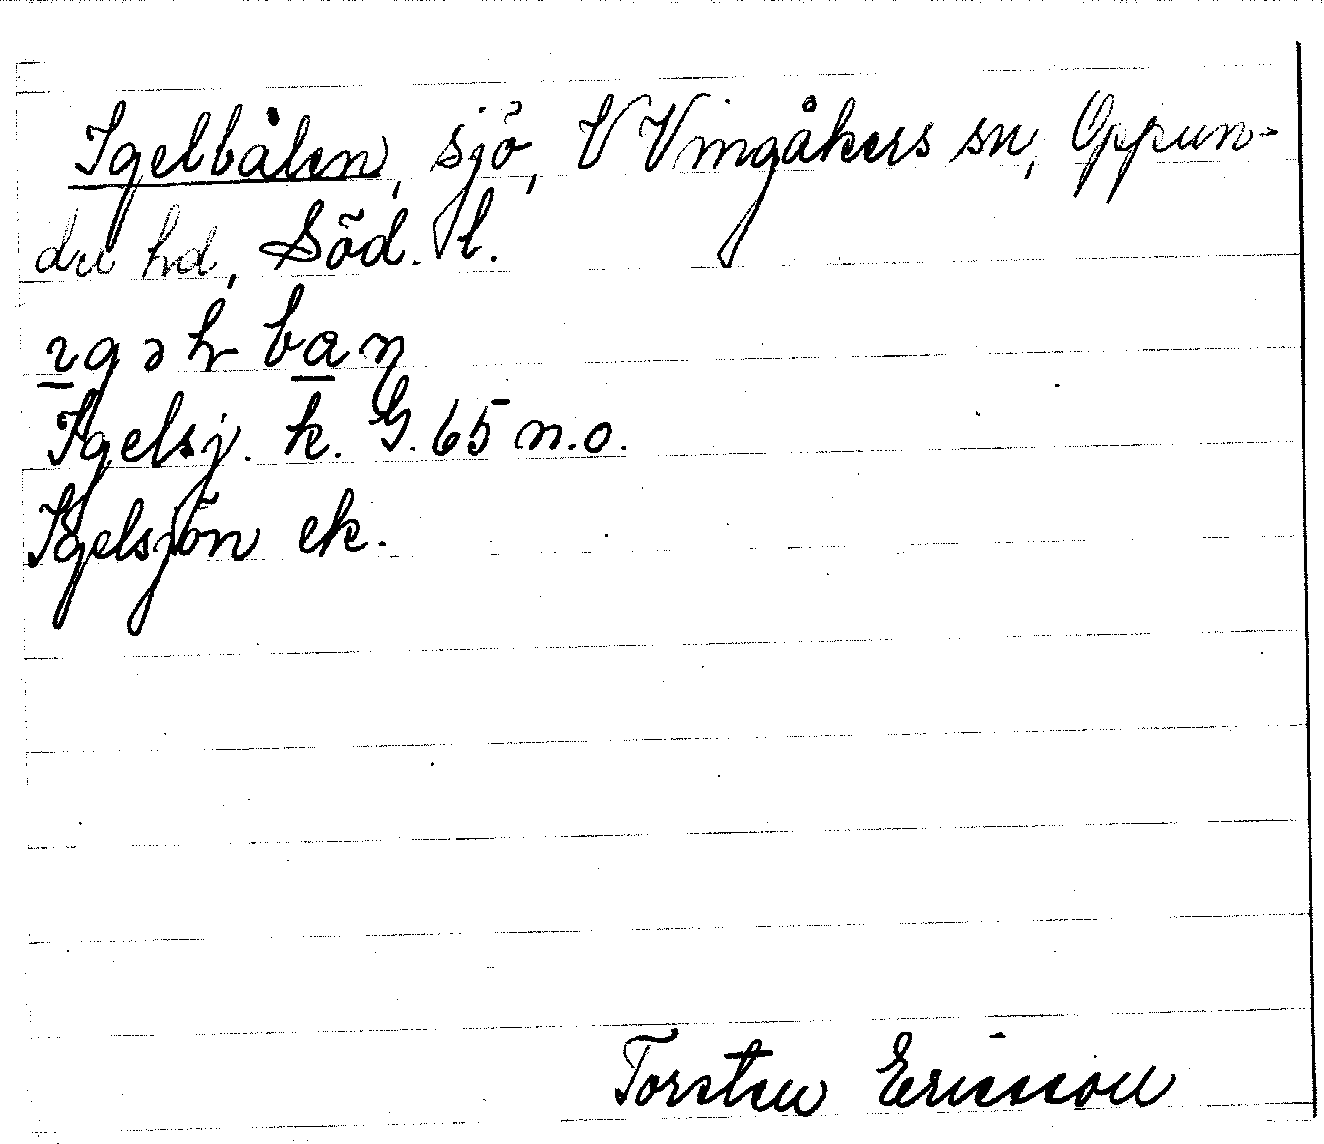 Igelbålen, sjö, V Vingåkers sn, Oppun-
da hd, Söd. l.
Igelsj. k. G. 65 n.o.
Igelsjön ek.
Torsten Ericsson